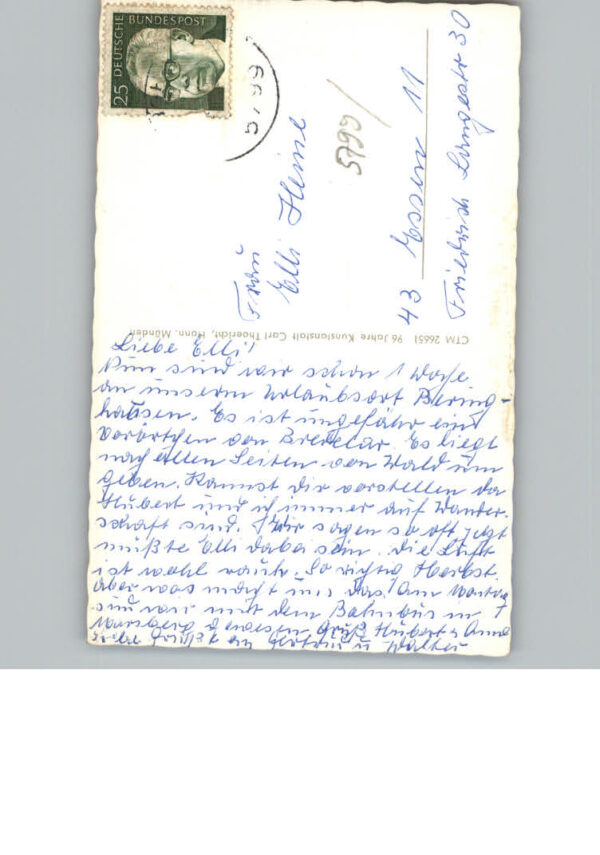 DEUTSCHE
BUNDESPOST
25
5799
5799/
Frau
Elli Heine
43 Essen 11
Friedrich Langestr 30
CTM 26651 96 Jahre Kunstanstalt Carl Thoericht, Hann. Münden
Liebe Elli!
Nun sind wir schon 1 Woche
an unserm Urlaubsort Bering-
hausen. Es ist ungefähr ein
Vorörtchen von Bredelar. Es liegt
nach allen Seiten von Wald um
geben. Kannst dir vorstellen da
Hubert und ich immer auf Wander-
schaft sind. Wir sagen so oft jetzt
müßte Elli dabei sein. Die Luft
ist wohl rauh. So richtig Herbst.
Aber was macht uns das! Am
sind wir mit dem Bahnbus in
gewesen Gruß Hubert u Anna
Liebe Grüße an u Walter